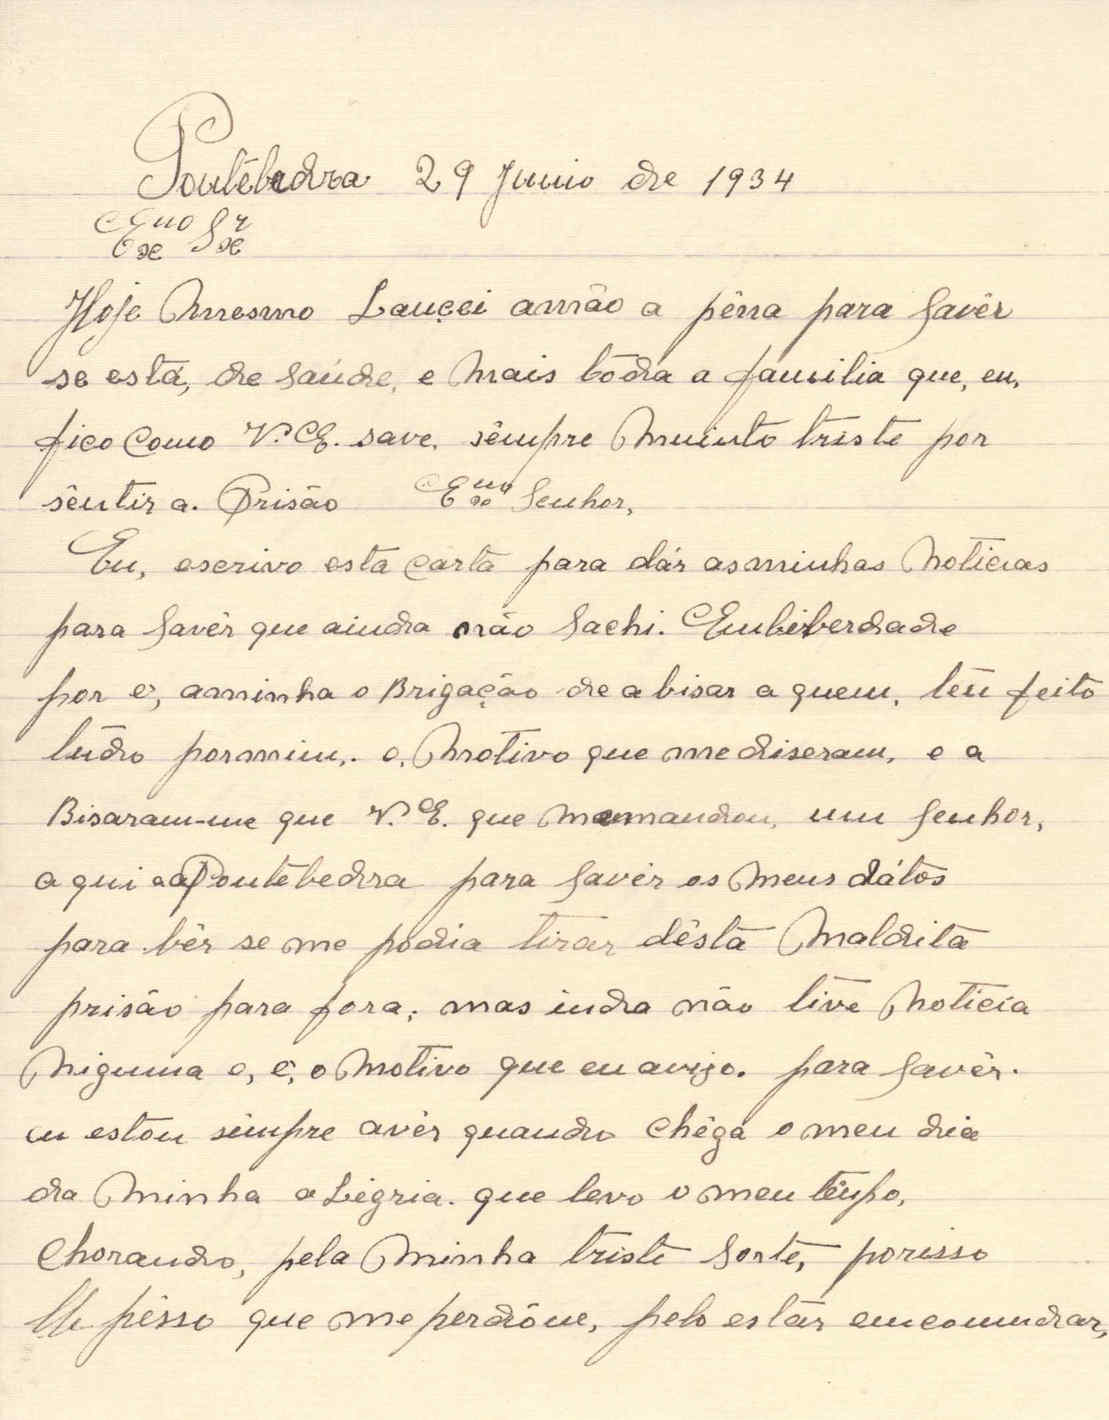 Pontebedra 29 Junio de 1934
Exmo Sr
Hoje Mesmo Lançei amão a pêna para Savêr
se está, de saúde, e Mais tôda a familia que, eu,
fico Como V.E. save, sêmpre Muinto triste por
sêntir a. Prisão Exmo Senhor,
Eu, escrivo esta carta para dár asminhas Noticias
para Savêr que ainda não Sachi. Emliberdade
por e, aminha o Brigação de a bisar a quem, têm feito
tudo pormim,. o, Motivo que mediseram, e a
Bisaram-me que V.E. que mamandou, um Senhor,
a qui a Pontebedra para Savêr os Meus dátos
para bêr se me podia tirar désta Maldita
prisão para fora; mas inda não tive Noticia
Niguma e, é, o Motivo que eu avizo. para Savêr.
eu estou sêmpre avêr quando chêga o meu dia
da Minha a Légria. que levo o meu têmpo,
Chorando, pela Minha triste Sorte, porisso
lhe pêsso que me perdône, pelo estár emcomudrar,